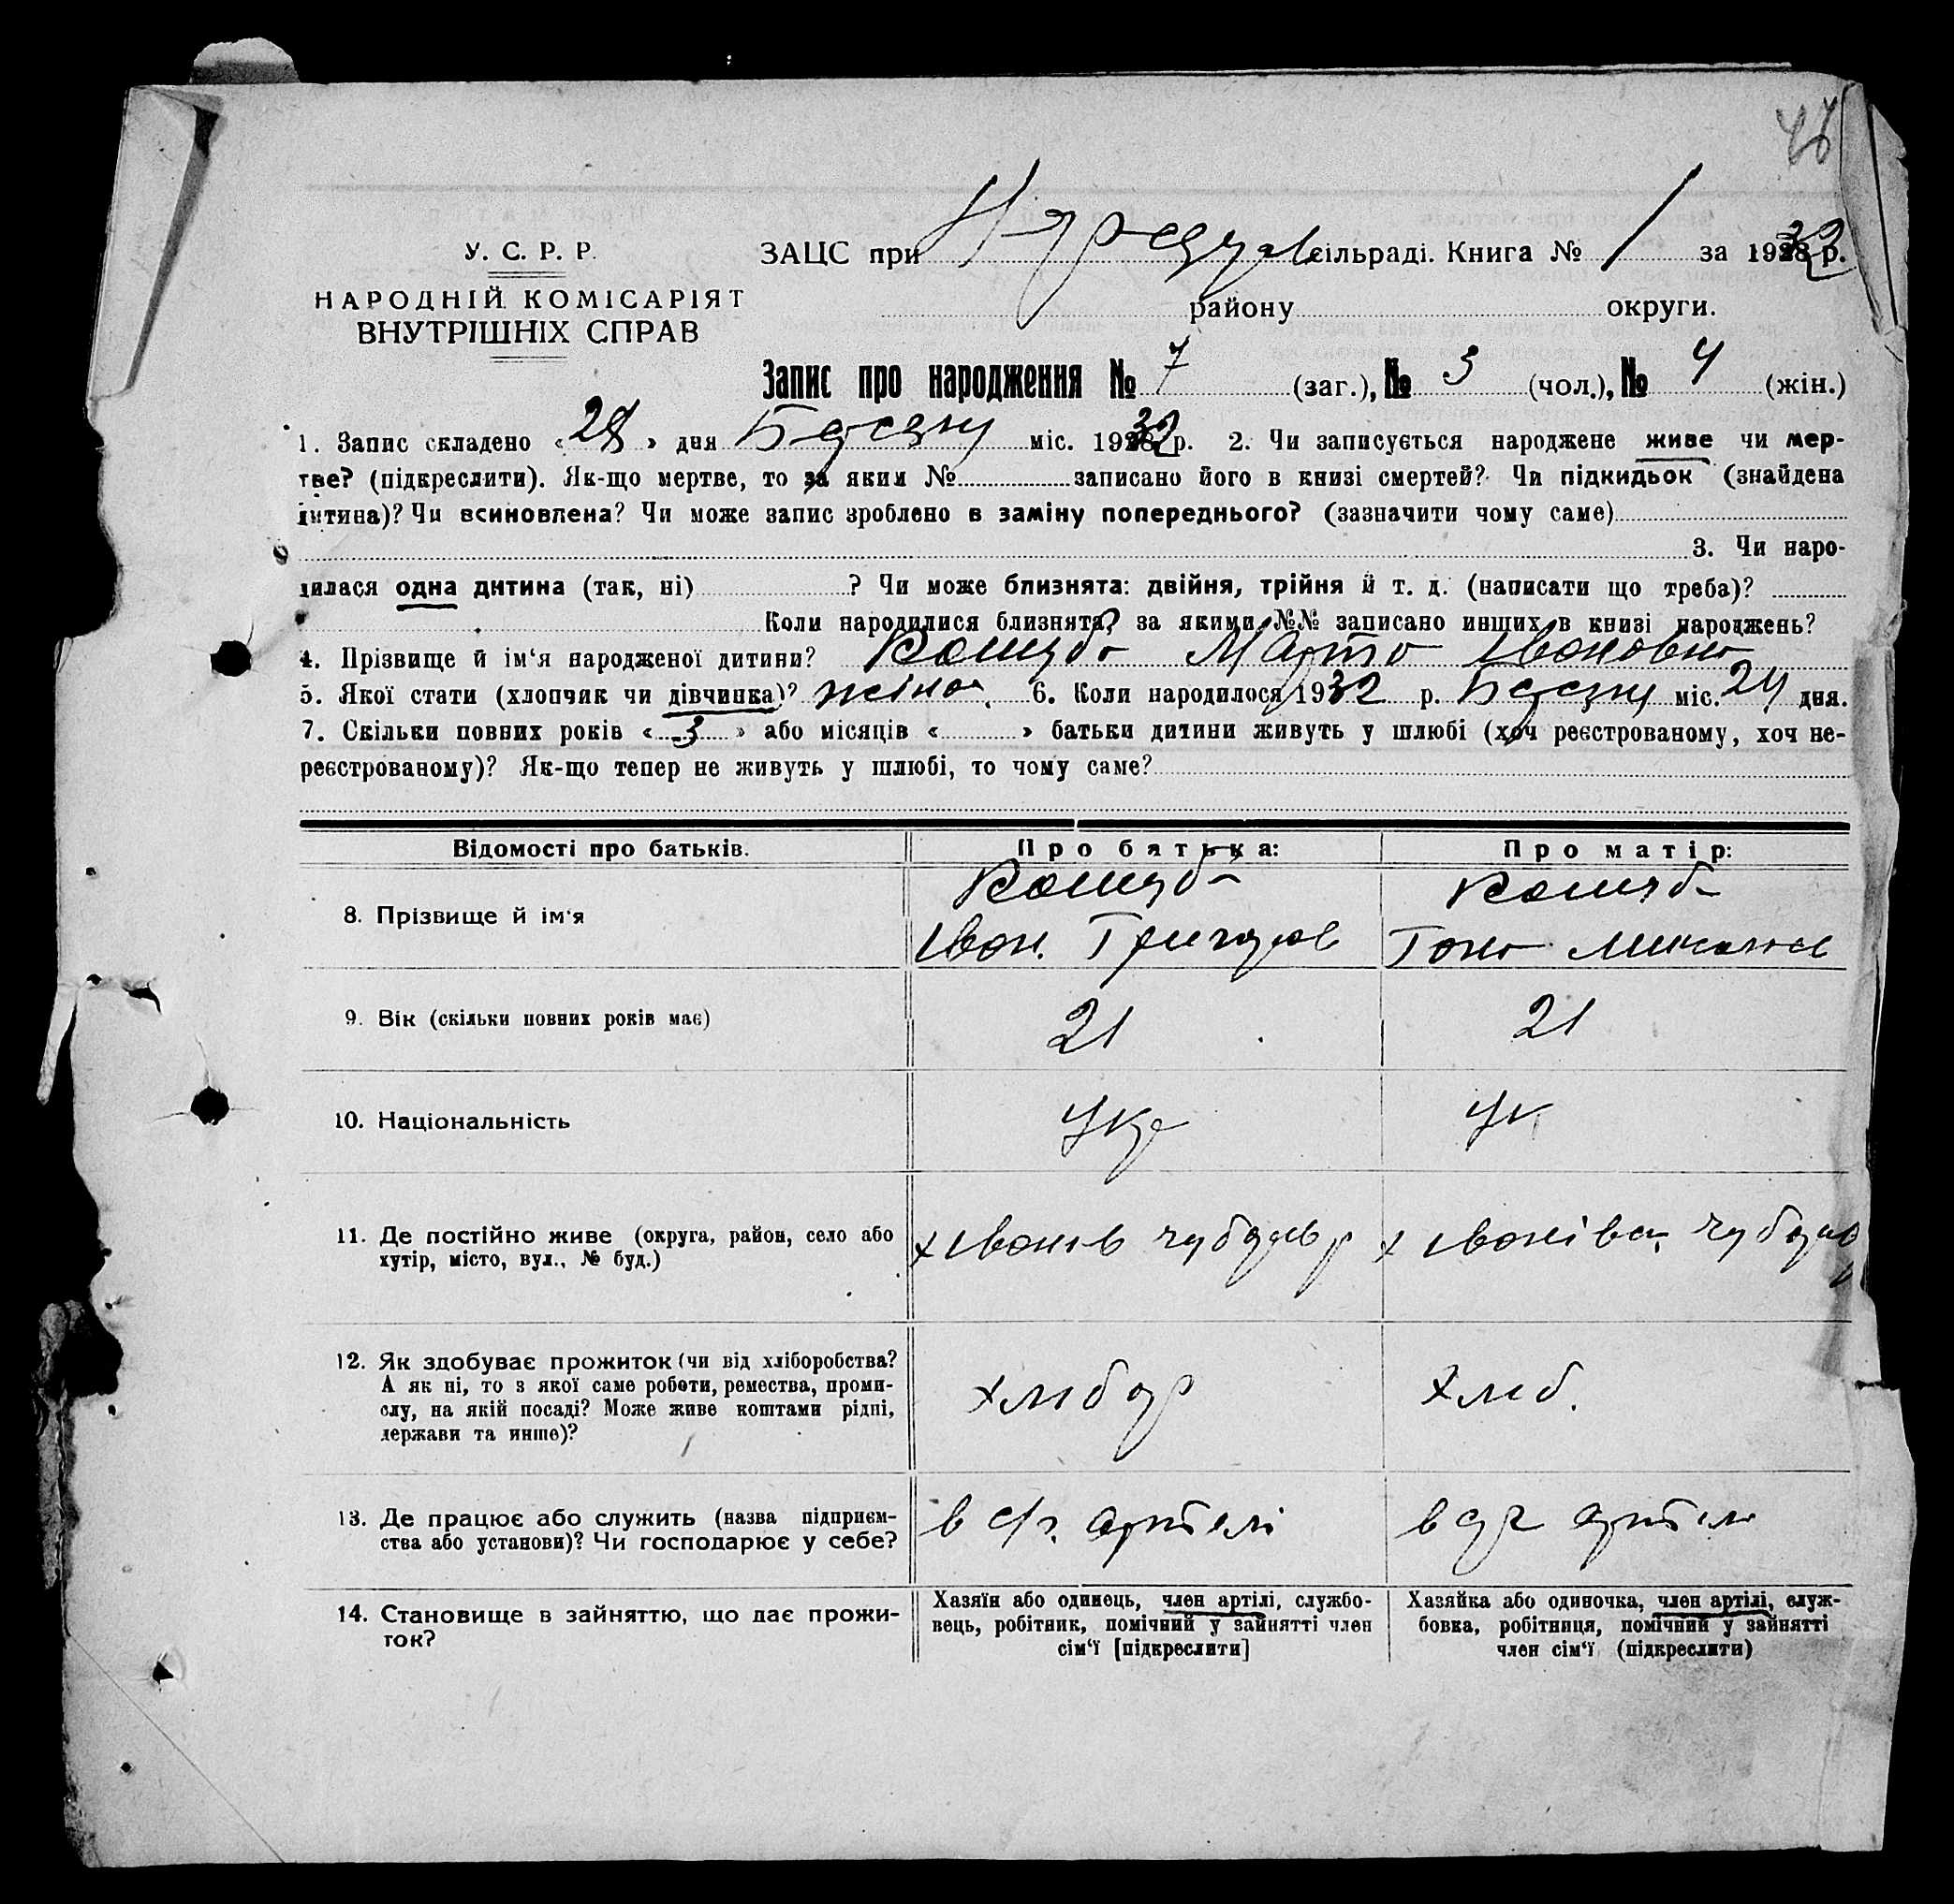 У. С. Р. Р.
НАРОДНІЙ КОМІСАРІЯТ
ВНУТРІШНІХ СПРАВ
ЗАЦС при сільраді. Книга № 1 за 1932 р.
району округи.
Запис про народження № 7 (заг.), № 3 (чол.), № 4 (жін.)
1. Запис складено « » дня Березня міс. 1932 р. 2. Чи записується народжене живе чи мер-
тве? (підкреслити). Як-що мертве, то за яким № записано його в книзі смертей? Чи підкидьок (знайдена
дитина)? Чи всиновлена? Чи може запис зроблено в заміну попереднього? (зазначити чому саме)
3. Чи наро-
дилася одна дитина (так, ні) ? Чи може близнята: двійня, трійня й т. д. (написати що треба)?
Коли народилися близнята? за якими №№ записано инших в книзі народжень?
4. Прізвище й ім‘я народженої дитини? Кошуба Марта Івановна
5. Якої стати (хлопчик чи дівчинка)? жіноч. 6. Коли народилося 1932 р. Березня міс. 24 дня.
7. Скільки повних років « 3 » або місяців « » батьки дитини живуть у шлюбі (хоч реєстрованому, хоч не-
реєстрованому)? Як-що тепер не живуть у шлюбі, то чому саме?
Відомості про батьків. Про батька: Про матір:
8. Прізвище й ім‘я
Кошуба Кошуба
Іван. Григоров Миколаєв
9. Вік (скільки повних років має) 21 21
10. Національність Укр Ук
11. Де постійно живе (округа, район, село або
хутір, місто, вул., № буд.)
х Іванів Чубарів р х Іванівка Чубарів
12. Як здобуває прожиток (чи від хліборобства?
А як ні, то з якої саме роботи, ремества, проми-
слу, на якій посаді? Може живе коштами рідні,
держави та инше)?
хлібор хліб.
13. Де працює або служить (назва підприєм-
ства або установи)? Чи господарює у себе?
в с/г. артелі в артелі
14. Становище в зайняттю, що дає прожи-
ток?
Хазяїн або одинець, член артілі, службо-
вець, робітник, помічний у зайнятті член
сім‘ї [підкреслити]
Хазяйка або одиночка, член артілі, служ-
бовка, робітниця, помічний у зайнятті
член сім‘ї (підкреслити)